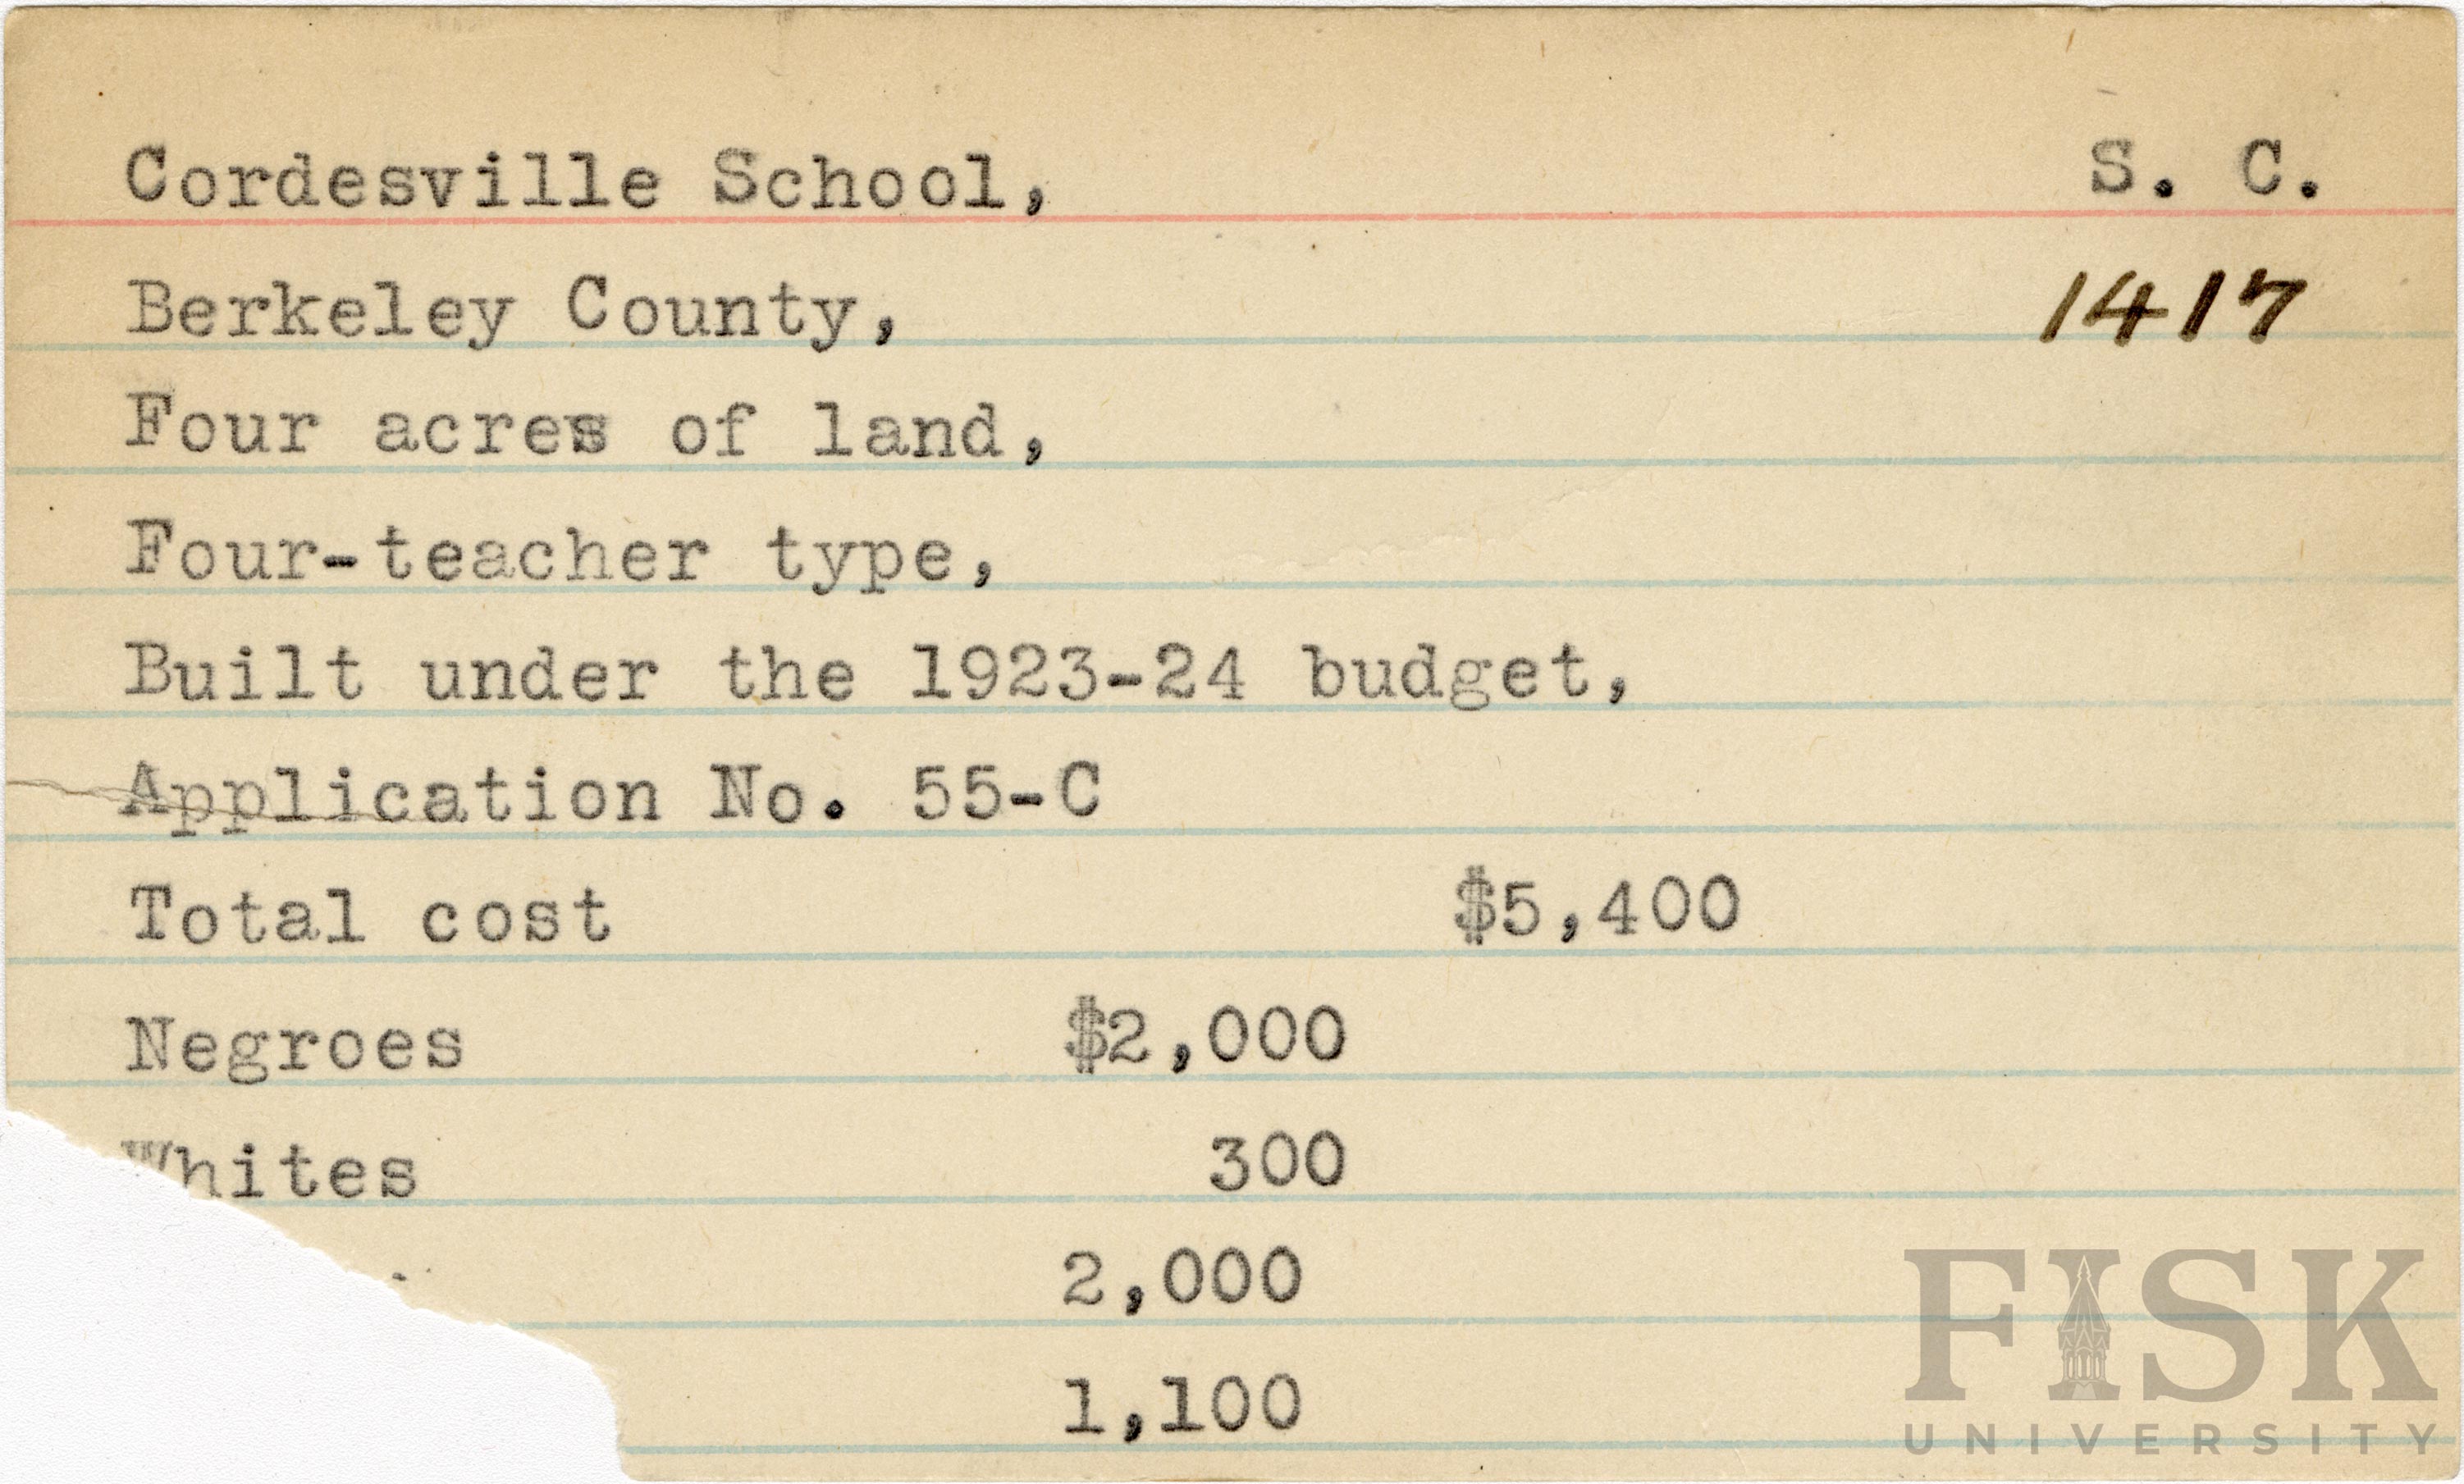 Cordesville School, S. C.
Berkeley County, 1417
Four acres of land,
Four-teacher type,
Built under the 1923-24 budget,
Application No. 55-C
Total cost $5,400
Negroes $2,000
Whites 300
2,000
1,100
FISK
UNIVERSITY